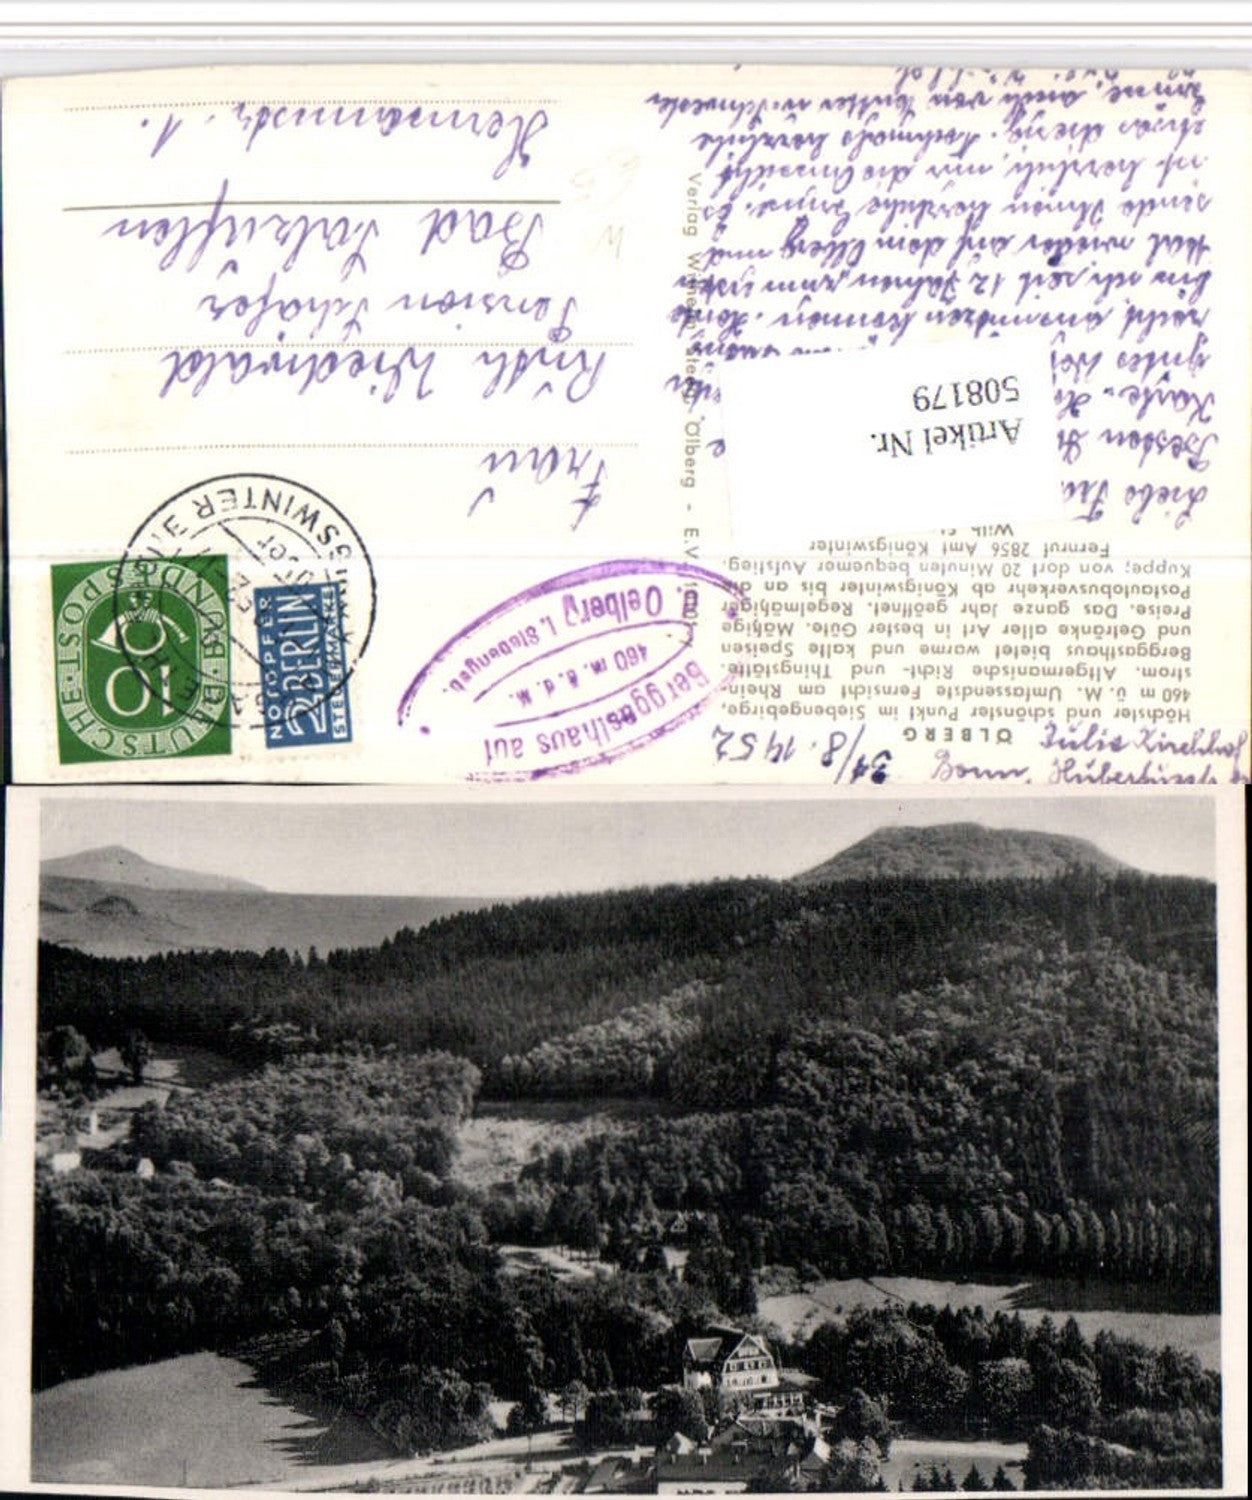 Julie Kirchhof
31/8. 1952
ÖLBERG
Höchster und schönster Punkt im Siebengebirge,
460 m ü. M. Umfassendste Fernsicht am Rhein-
strom. Altgermanische Richt- und Thingstätte.
Berggasthaus bietet warme und kalte Speisen
und Getränke aller Art in bester Güte. Mäßige
Preise. Das ganze Jahr geöffnet. Regelmäßiger
Postautobusverkehr ab Königswinter bis an die
Kuppe; von dort 20 Minuten bequemer Aufstieg.
Fernruf 2856 Amt Königswinter
Wilh. St
Liebe
Besten
Karte.
gutes
recht ausnützen können. Heute
bin ich, seit 12 Jahren zum ersten
Mal wieder auf dem Ölberg und
sende Ihnen herzliche Grüsse. Es
ist herrlich, nur die Aussicht
etwas diesig. Nochmals herzliche
Grüsse, auch von Mutter u. Schwester
Artikel Nr.
508179
Verlag Wilhelm Steeg, Ölberg - E.V.
Berggasthaus auf
460 m. ü. d. M.
Oelberg i. Siebengeb.
DEUTSCHE BUNDESPOST
10
NOTOPFER
2 BERLIN
STEUERMARKE
KÖNIGSWINTER
Frau
Ruth Wiedwald
Pension Schäfer
Bad Salzuflen
Hermannstr. 1.